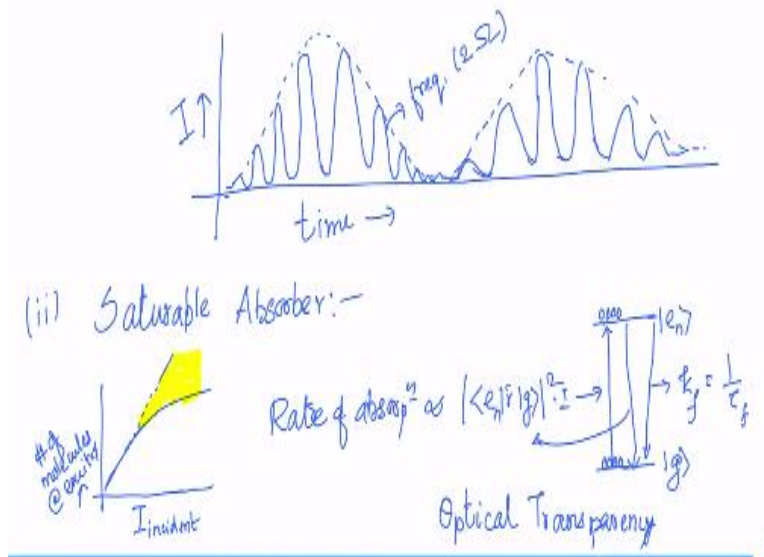 I↑
freq. (2Ω)
time →
(ii) Saturable Absorber:-
# of
molecules
@ excited
I incident
Rate of absorpⁿ ∝ |<eₙ|r̂|g>|²·I →
|eₙ>
→ k_f = 1/τ_f
|g>
Optical Transparency